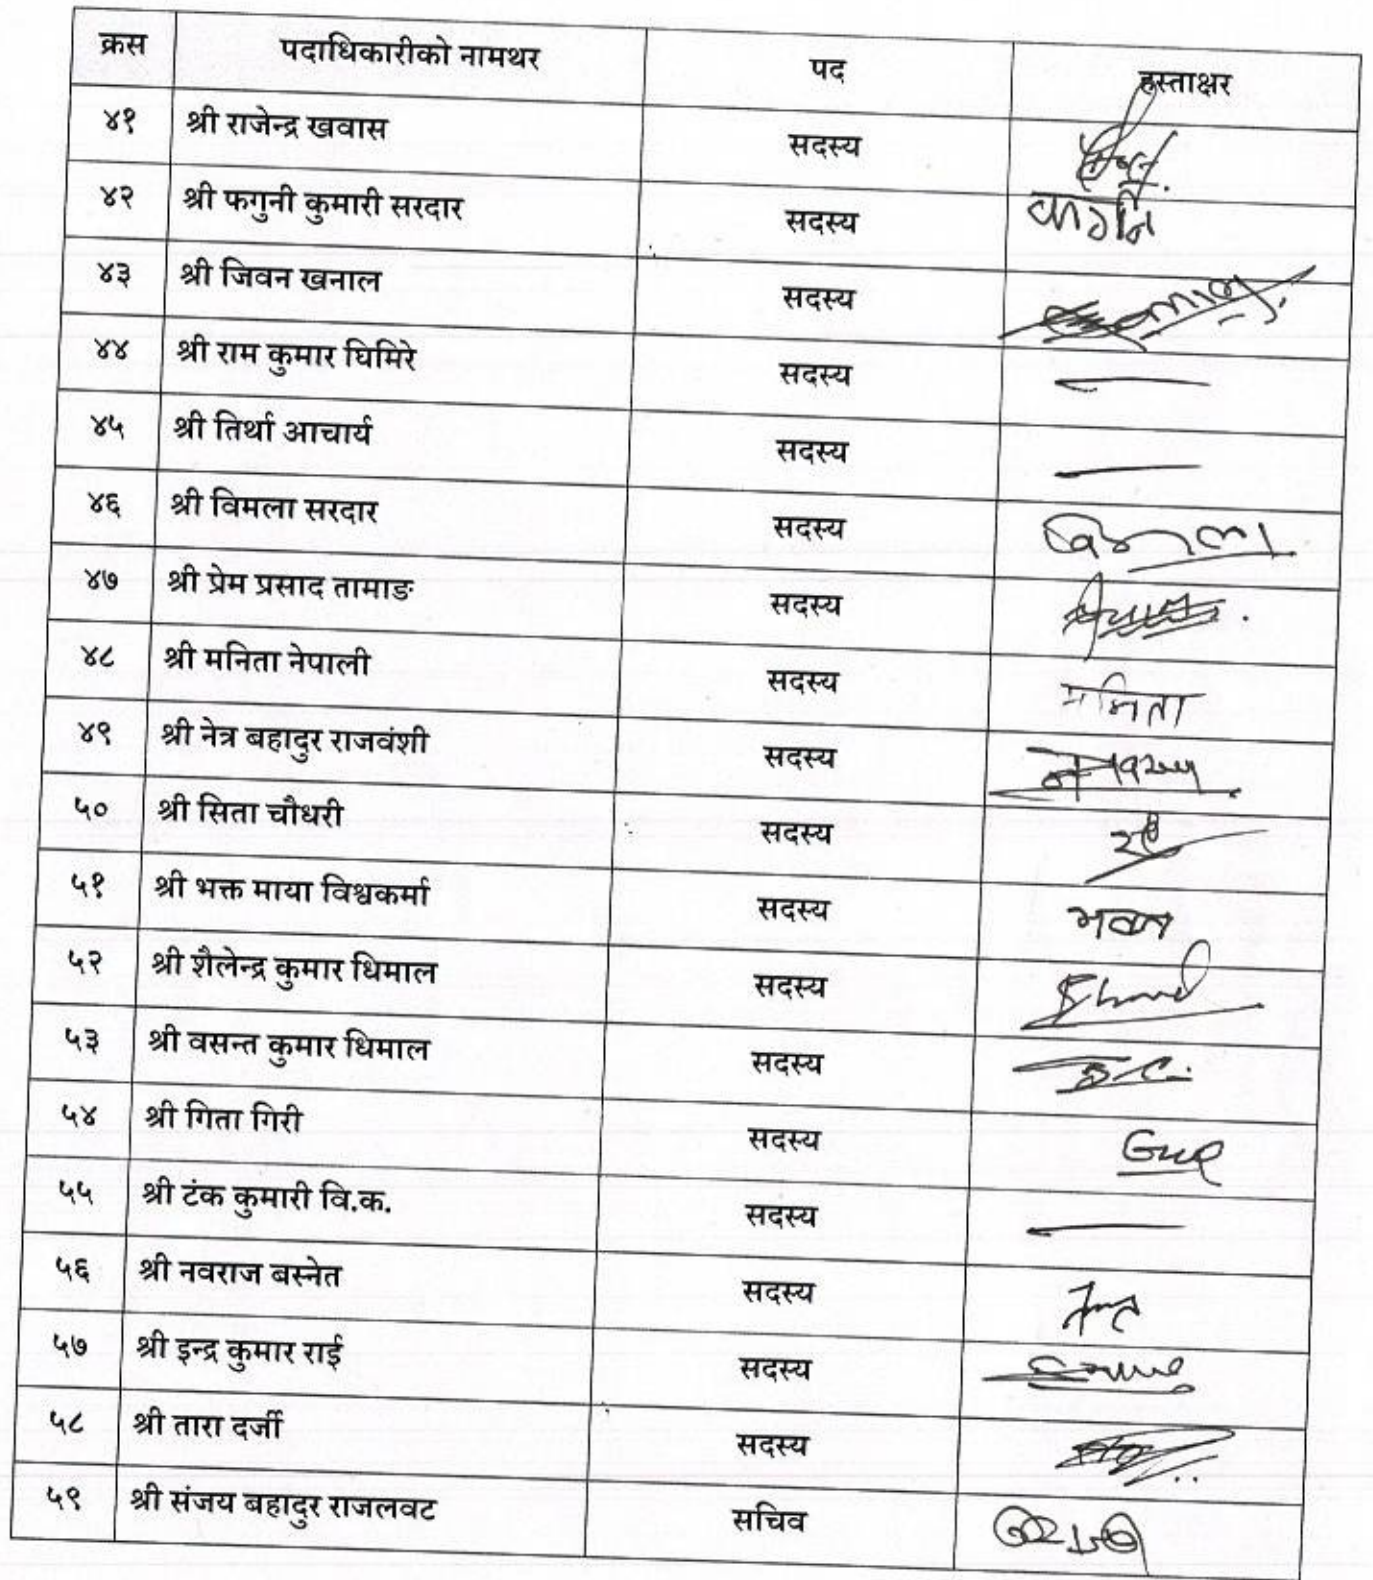 क्रस पदाधिकारीको नामथर पद हस्ताक्षर
४१ श्री राजेन्द्र खवास सदस्य
४२ श्री फगुनी कुमारी सरदार सदस्य
४३ श्री जिवन खनाल सदस्य
४४ श्री राम कुमार घिमिरे सदस्य —
४५ श्री तिर्था आचार्य सदस्य —
४६ श्री विमला सरदार सदस्य विमला
४७ श्री प्रेम प्रसाद तामाङ सदस्य
४८ श्री मनिता नेपाली सदस्य मनिता
४९ श्री नेत्र बहादुर राजवंशी सदस्य
५० श्री सिता चौधरी सदस्य
५१ श्री भक्त माया विश्वकर्मा सदस्य भक्त
५२ श्री शैलेन्द्र कुमार धिमाल सदस्य
५३ श्री वसन्त कुमार धिमाल सदस्य
५४ श्री गिता गिरी सदस्य
५५ श्री टंक कुमारी वि.क. सदस्य —
५६ श्री नवराज बस्नेत सदस्य
५७ श्री इन्द्र कुमार राई सदस्य
५८ श्री तारा दर्जी सदस्य
५९ श्री संजय बहादुर राजलवट सचिव